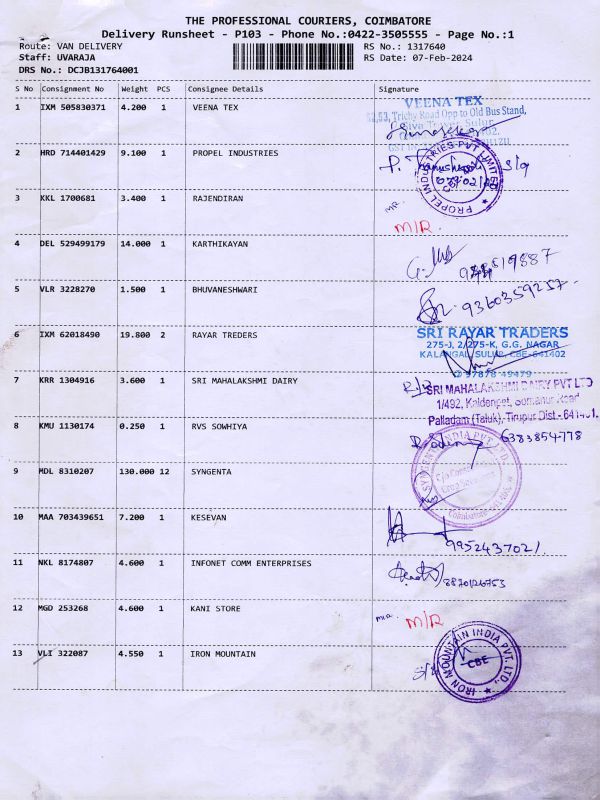 THE PROFESSIONAL COURIERS, COIMBATORE
Delivery Runsheet - P103 - Phone No.:0422-3505555 - Page No.:1
Route: VAN DELIVERY RS No.: 1317640
Staff: UVARAJA RS Date: 07-Feb-2024
DRS No.: DCJB131764001
S No Consignment No Weight PCS Consignee Details Signature
1 IXM 505830371 4.200 1 VEENA TEX
VEENA TEX
Trichy Road Opp to Old Bus Stand,
2 HRD 714401429 9.100 1 PROPEL INDUSTRIES
PROPEL INDUSTRIES PVT LIMITED
3 KKL 1700681 3.400 1 RAJENDIRAN
M/R.
4 DEL 529499179 14.000 1 KARTHIKAYAN
5 VLR 3228270 1.500 1 BHUVANESHWARI
9360359257.
6 IXM 62018490 19.800 2 RAYAR TREDERS
SRI RAYAR TRADERS
275-J, 2/275-K, G.G. NAGAR
KALANGAL, SULUR, CBE-641402
97878 49479
7 KRR 1304916 3.600 1 SRI MAHALAKSHMI DAIRY
SRI MAHALAKSHMI DAIRY PVT LTD
Palladam (Taluk), Tirupur Dist.-
8 KMU 1130174 0.250 1 RVS SOWHIYA
6383854778
9 MDL 8310207 130.000 12 SYNGENTA
SYNGENTA INDIA PVT. LTD.
10 MAA 703439651 7.200 1 KESEVAN
9952437021
11 NKL 8174807 4.600 1 INFONET COMM ENTERPRISES
12 MGD 253268 4.600 1 KANI STORE
M/R
13 VLI 322087 4.550 1 IRON MOUNTAIN
IRON MOUNTAIN INDIA PVT. LTD.,
CBE